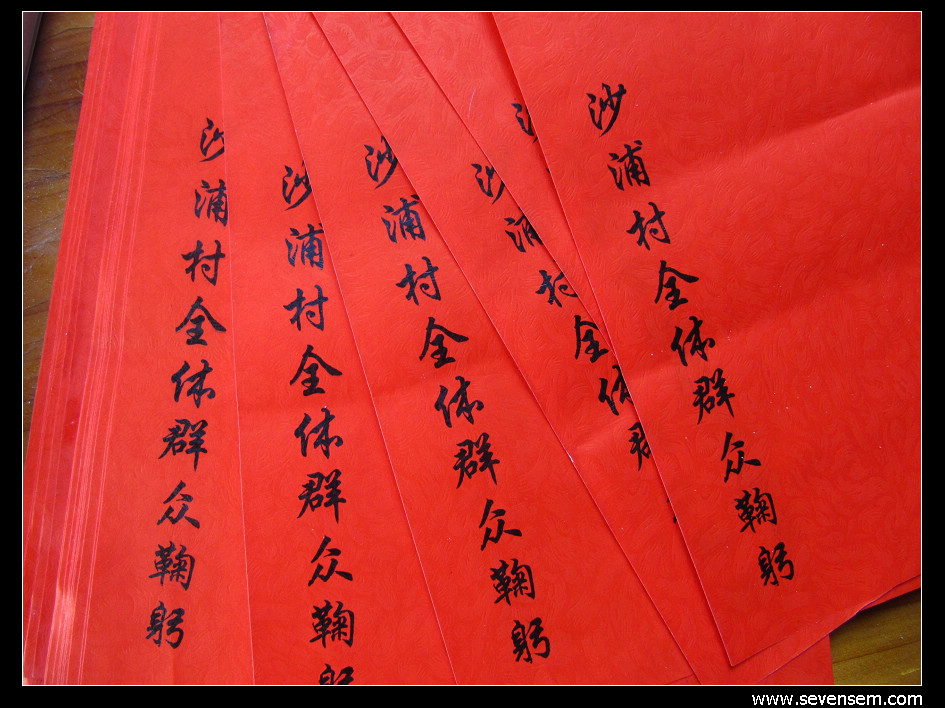 沙浦村全体群众鞠躬
沙浦村全体群众鞠躬
沙浦村全体群众鞠躬
沙浦村全体群
沙浦村全体群众鞠躬
www.sevensem.com